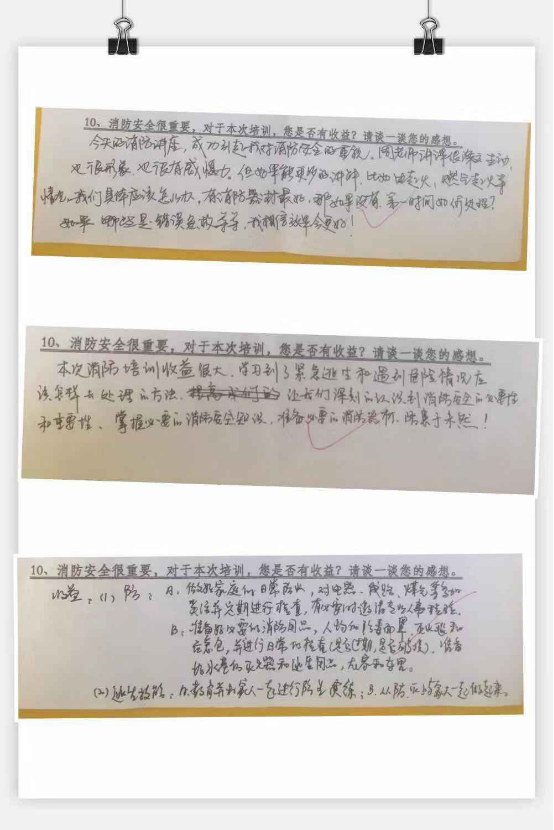 10、消防安全很重要，对于本次培训，您是否有收益？请谈一谈您的感想。
今天的消防讲座，成功引起我对消防安全的重视。周老师讲课很生动，
也很形象，也很有感慑力，但如果能更多的讲解，比如油起火，燃气起火等
情况，我们具体应该怎么办，有消防器材最好，那如果没有，第一时间如何处理？
如果 哪些是错误急救等等，我相信效果会更好！
10、消防安全很重要，对于本次培训，您是否有收益？请谈一谈您的感想。
本次消防培训收益很大，学习到了紧急逃生和遇到危险情况应
该怎样去处理的方法，让我们深刻的认识到消防安全的必要性
和重要性、掌握必要的消防安全知识，准备必要的消防器材，防患于未然！
10、消防安全很重要，对于本次培训，您是否有收益？请谈一谈您的感想。
收益：(1) 防： A：做好家庭的日常防火，对电器、线路、煤气等各
定期进行检查，有必要时邀请专业人事检验。
B：准备好必要的消防用品，人均和防毒面罩，灭火毯和
应急包，并进行日常的检查(是否过期，是否破损)，准备
的灭火器和逃生用品，
(2) 逃生技能：A：教育并和家人一起进行防生演练；B：从防火与家人一起做起来。